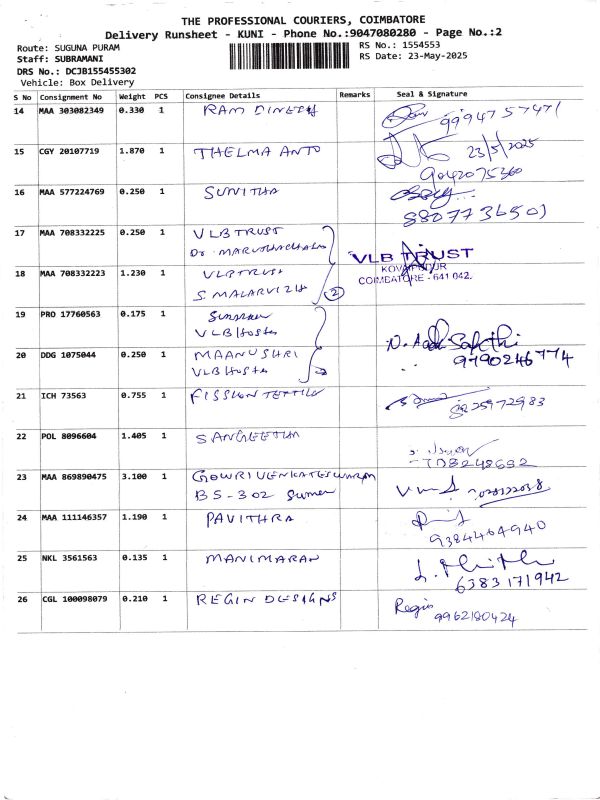 THE PROFESSIONAL COURIERS, COIMBATORE
Delivery Runsheet - KUNI - Phone No.:9047080280 - Page No.:2
Route: SUGUNA PURAM
RS No.: 1554553
Staff: SUBRAMANI
RS Date: 23-May-2025
DRS No.: DCJB155455302
Vehicle: Box Delivery
S No Consignment No Weight PCS Consignee Details Remarks Seal & Signature
14 MAA 303082349 0.330 1 RAM DINESH 9994757471
15 CGY 20107719 1.870 1 THELMA ANTO 23/5/2025
9042075360
16 MAA 577224769 0.250 1 SUNITHA
8807736501
17 MAA 708332225 0.250 1 VLB TRUST
Dr. MARUTHACHALAM
VLB TRUST
KOVAIPUDUR
COIMBATORE - 641 042.
18 MAA 708332223 1.230 1 VLB TRUST
S. MALARVIZHI 2
19 PRO 17760563 0.175 1
VLB Hostel
20 DDG 1075044 0.250 1 MAANUSHRI
VLB Hostel
9790246774
21 ICH 73563 0.755 1 FISSION TEXTILE
8825972983
22 POL 8096604 1.405 1 SANGEETHA
23 MAA 869890475 3.100 1 GOWRI VENKATESWARAN
B5-302
24 MAA 111146357 1.190 1 PAVITHRA
9384464940
25 NKL 3561563 0.135 1 MANIMARAN
6383171942
26 CGL 100098079 0.210 1 REGIN DESIGNS Regin
9962180424